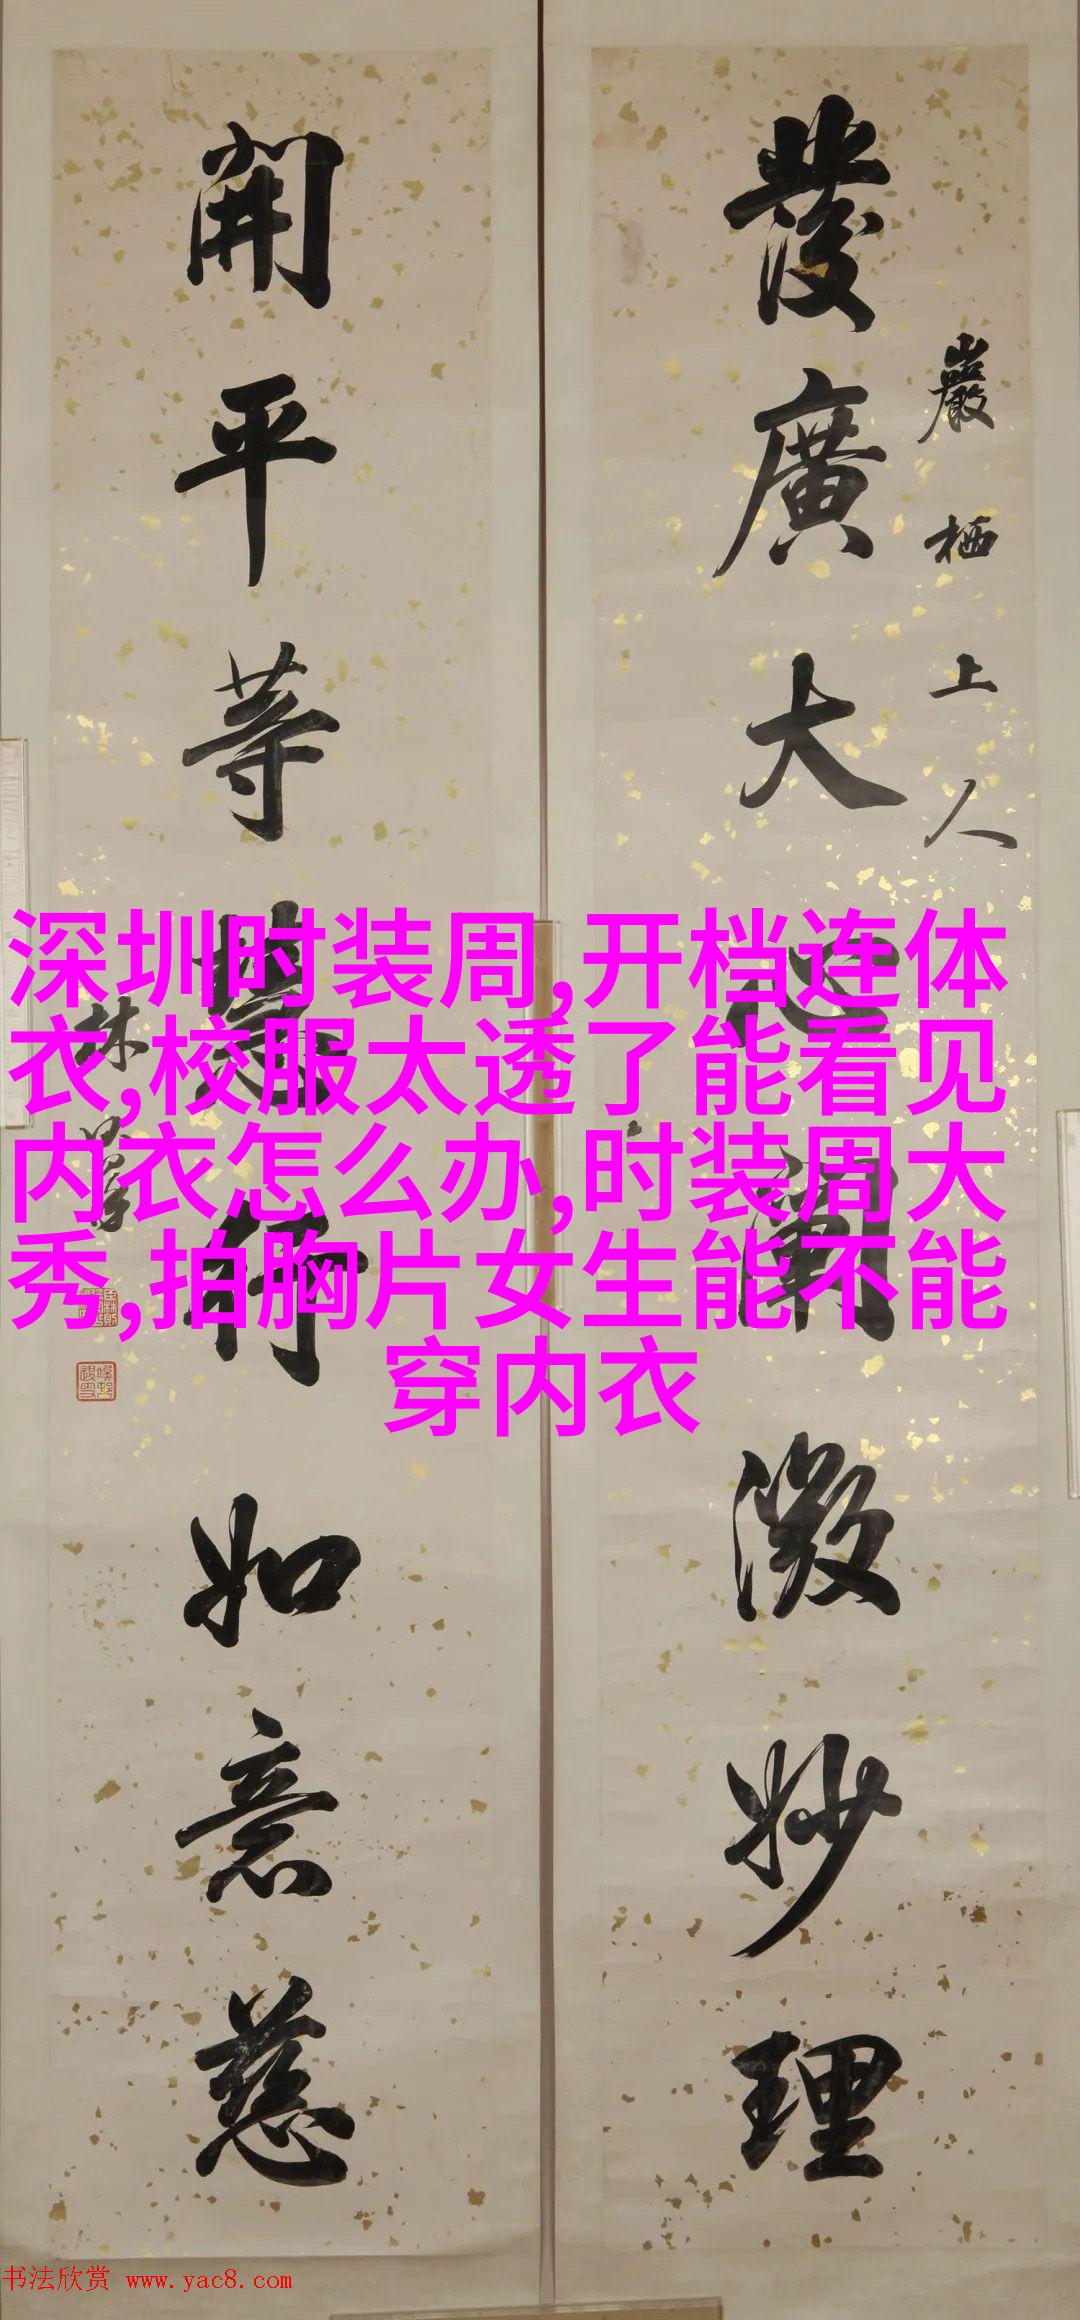 發廣大心闡微妙理
巖栖上人
開平等慧行如意慈
林
深圳时装周,开档连体
衣,校服太透了能看见
内衣怎么办,时装周大
秀,拍胸片女生能不能
穿内衣
书法欣赏 www.yac8.com